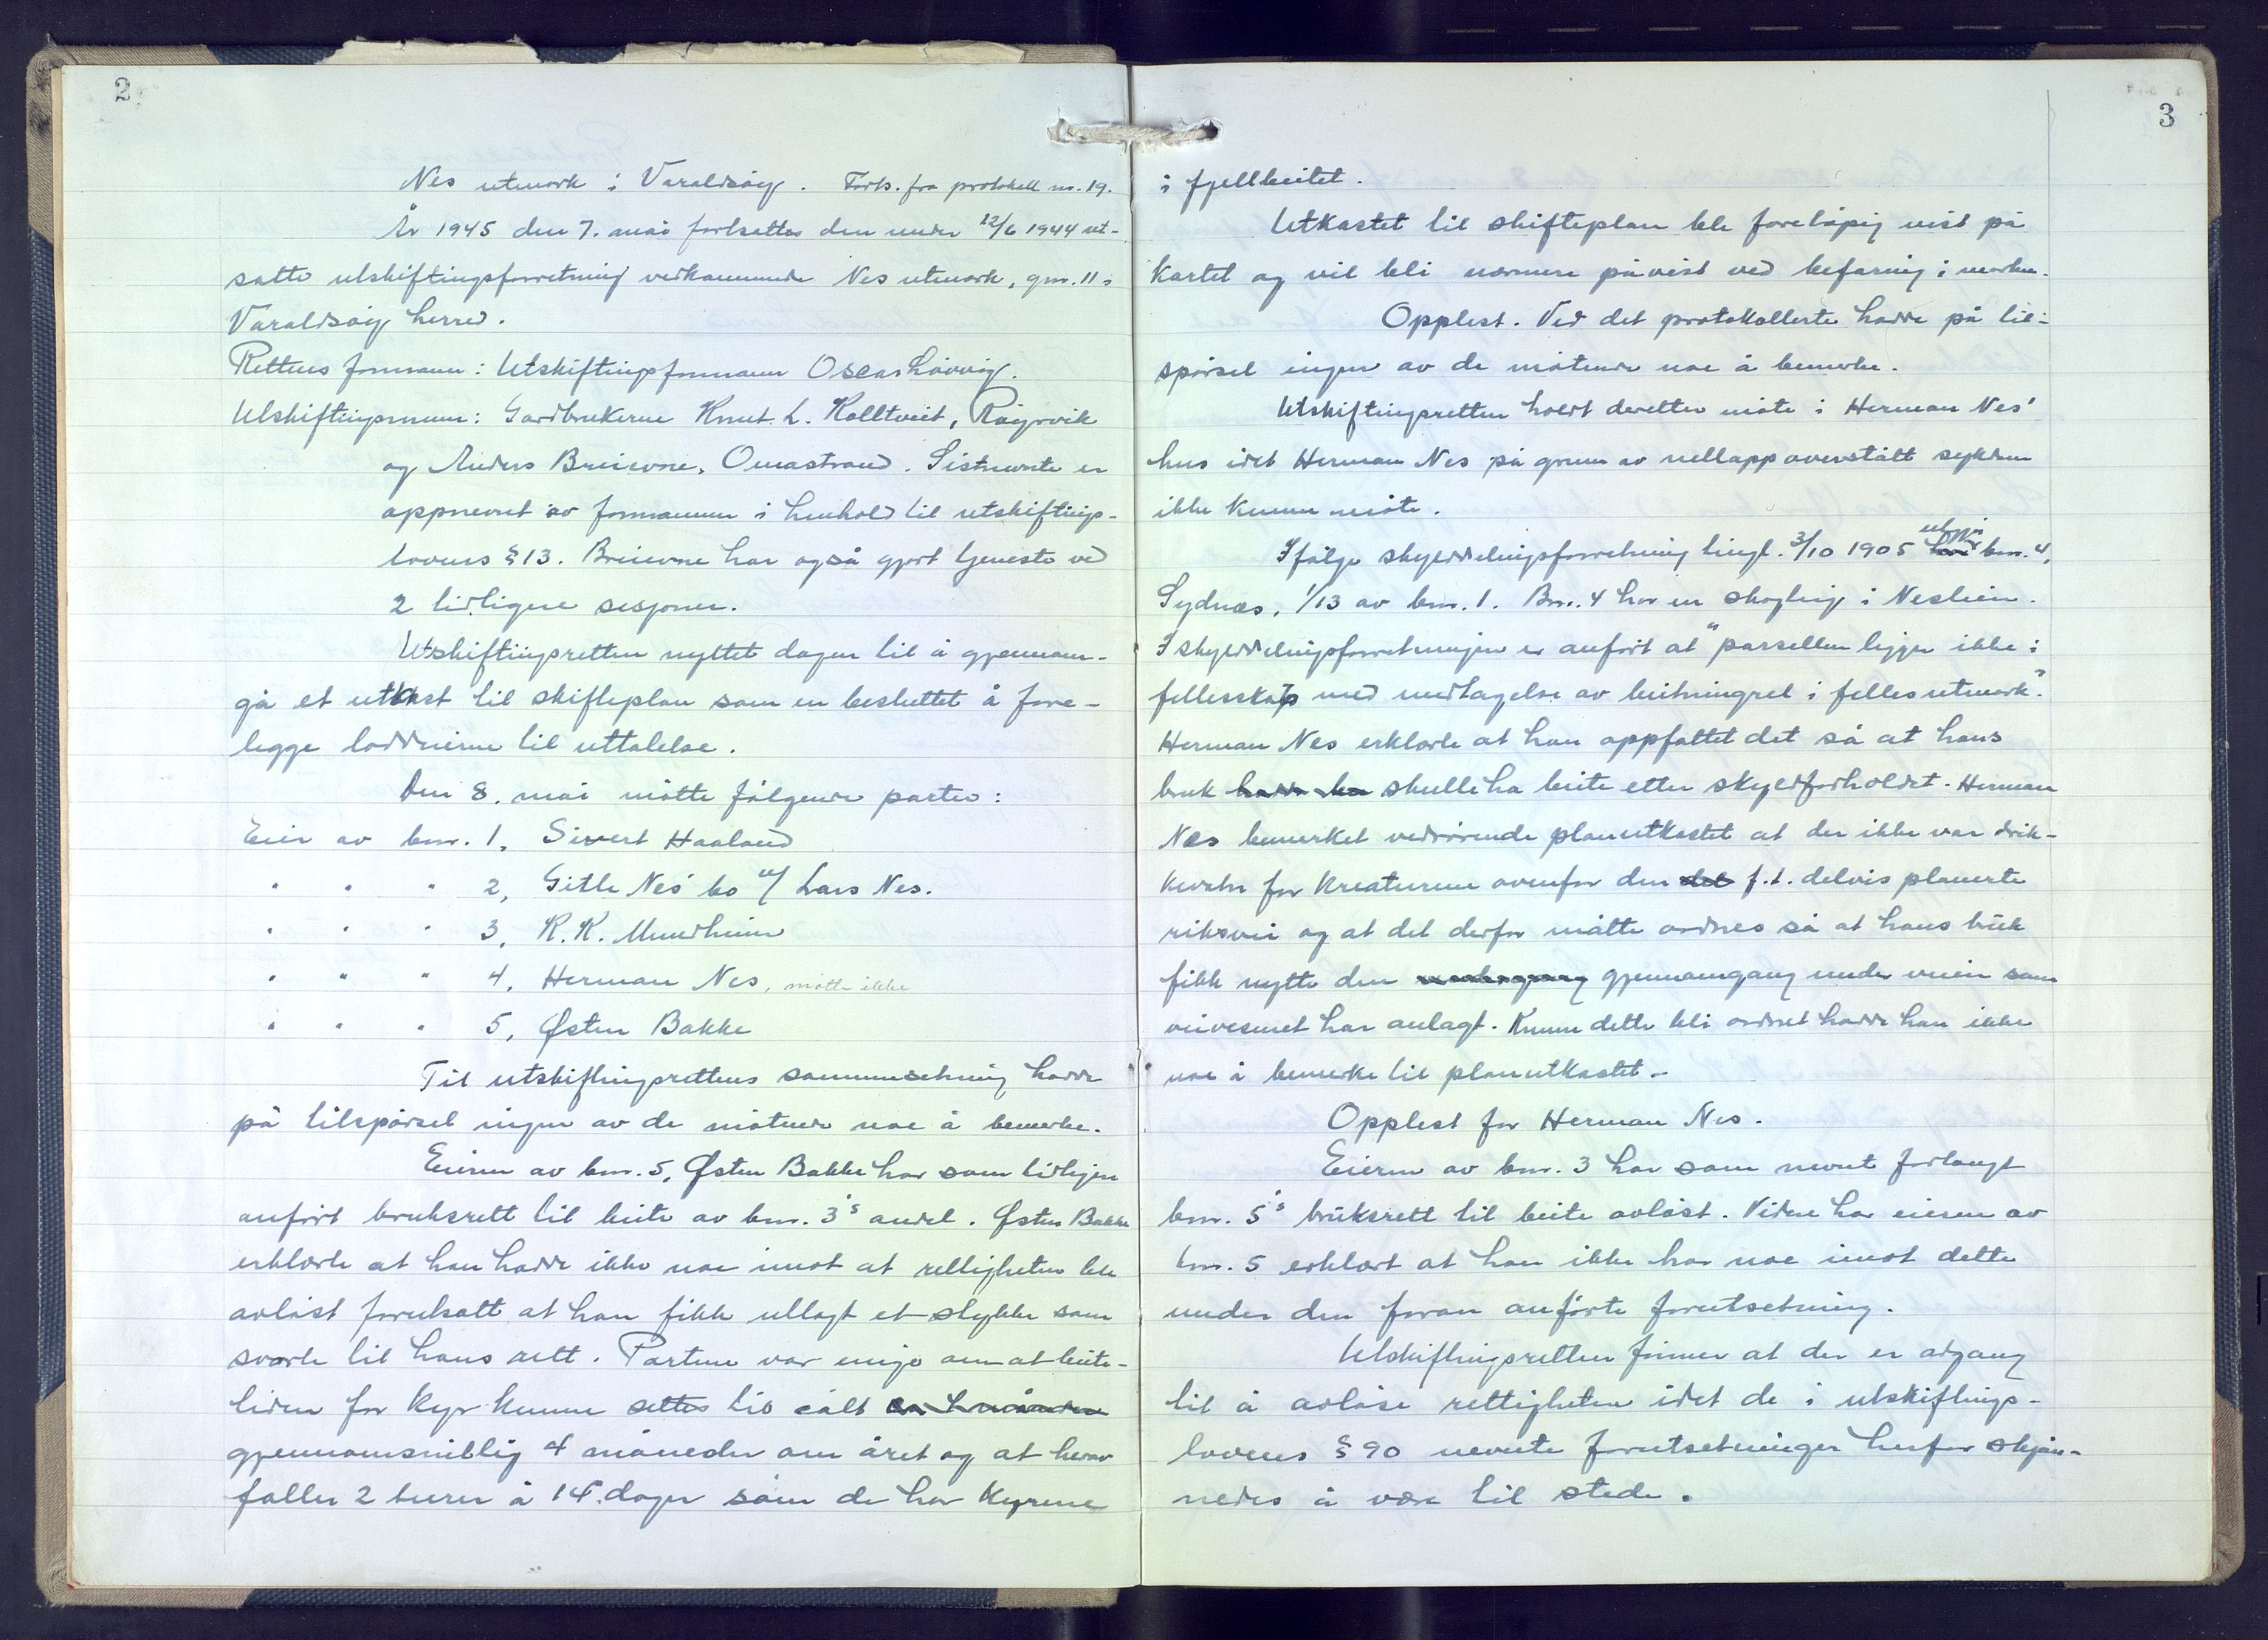 2
Nes utmark i Varaldsøy. Forts. fra protokoll nr. 19.
År 1945 den 7. mai fortsattes den under 12/6 1944 ut-
satte utskiftingsforretning vedkommende Nes utmark, gnr. 11 i
Varaldsøy herred.
Rettens formann: Utskiftingsformann Oscar Løvvig.
Utskiftingsmenn: Gardbrukerne Knut L. Holltveit, Røyrvik
og Anders Breievne, Omastrand. Sistnevnte er
oppnevnt av formannen i henhold til utskiftings-
lovens § 13. Breievne har også gjort tjeneste ved
2 tidligere sesjoner.
Utskiftingsretten nyttet dagen til å gjennom-
gå et utkast til skifteplan som en besluttet å fore-
legge loddeierne til uttalelse.
Den 8. mai møtte følgende parter:
Eier av bnr. 1, Sivert Haaland
" " " 2, Gitle Nes' bo v/ Lars Nes.
" " " 3, K. K. Mundheim
" " " 4, Herman Nes, møtte ikke
" " " 5, Østen Bakke
Til utskiftingsrettens sammensetning hadde
på tilspørsel ingen av de møtende noe å bemerke.
Eieren av bnr. 5, Østen Bakke har som tidligere
anført bruksrett til beite av bnr. 3's andel. Østen Bakke
erklærte at han hadde ikke noe imot at rettigheten ble
avløst forutsatt at han fikk utlagt et stykke som
svarte til hans rett. Partene var enige om at beite-
tiden for kyr kunne settes til i alt
gjennomsnittlig 4 måneder om året og at herav
faller 2 turer å 14 dager som de har kyrene
3
i fjellbeitet.
Utkastet til skifteplan ble foreløpig vist på
kartet og vil bli nærmere påvist ved befaring i marken.
Opplest. Ved det protokollerte hadde på til-
spørsel ingen av de møtende noe å bemerke.
Utskiftingsretten holdt deretter møte i Herman Nes'
hus idet Herman Nes på grunn av nettopp overstått sykdom
ikke kunne møte.
Ifølge skylddelingsforretning tingl. 3/10 1905 utgjør bnr. 4,
Sydnes, 1/13 av bnr. 1. Bnr. 4 har en skogteig i Neslien.
I skylddelingsforretningen er anført at "parsellen ligger ikke i
fellesskap med undtagelse av beitningret i felles utmark."
Herman Nes erklærte at han oppfattet det så at hans
bruk hadde ha skulle ha beite etter skyldforholdet. Herman
Nes bemerket vedrørende planutkastet at der ikke var drik-
kevatn for kreaturene ovenfor den det f. t. delvis planerte
riksvei og at det derfor måtte ordnes så at hans bruk
fikk nytte den undergang gjennomgang under veien som
veivesenet har anlagt. Kunne dette bli ordnet hadde han ikke
noe å bemerke til planutkastet.-
Opplest for Herman Nes.
Eieren av bnr. 3 har som nevnt forlangt
bnr. 5's bruksrett til beite avløst. Videre har eieren av
bnr. 5 erklært at han ikke har noe imot dette
under den foran anførte forutsetning.
Utskiftingsretten finner at der er adgang
til å avløse rettigheten idet de i utskiftings-
lovens § 90 nevnte forutsetninger herfor skjøn-
nedes å være til stede.